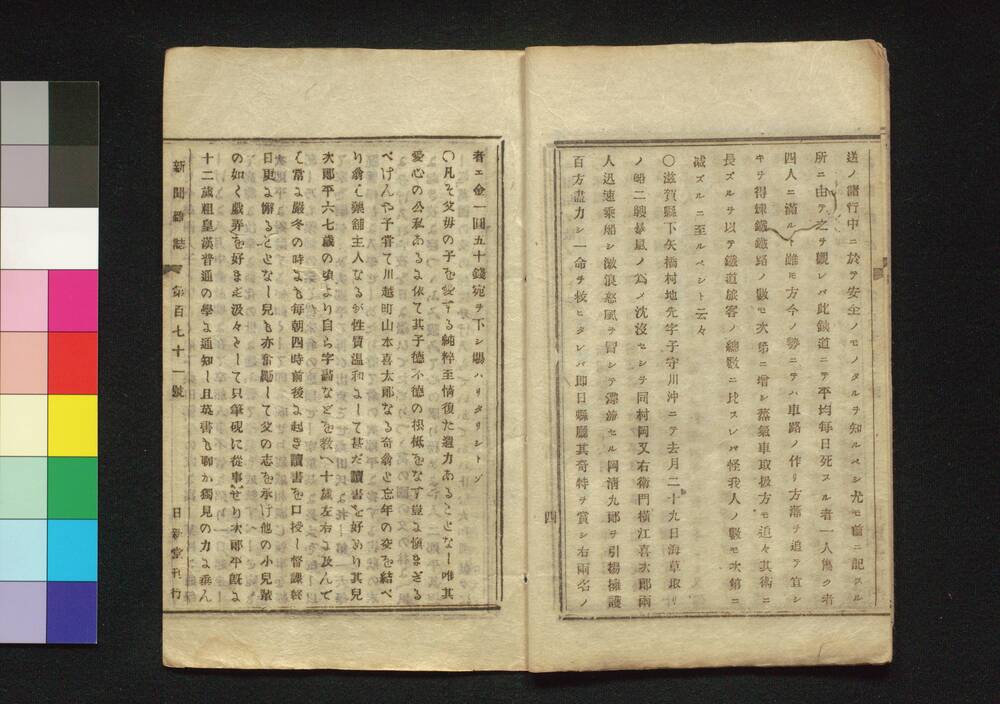 送ノ諸行中ニ於テ安全ノモノタルヲ知ルベシ尤モ前ニ記スル
所ニ由テ之ヲ觀レバ此鐵道ニテ平均每日死スル者一人傷ク者
四人ニ滿ルト雖モ方今ノ勢ニテハ車路ノ作リ方漸ヲ追テ宜シ
キヲ得煉鐵鐵路ノ數モ次第ニ增シ蒸氣車取扱方モ追々其術ニ
長ズルヲ以テ鐵道旅客ノ總數ニ比スレバ怪我人ノ數モ次第ニ
減ズルニ至ルベシト云々
〇滋賀縣下矢橋村地先字子守川沖ニテ去月二十九日海草取リ
ノ船二艘暴風ノ爲メ沈沒セシヲ同村岡又右衞門橫江喜次郎兩
人迅速乘船シ激浪怒風ヲ冒シ漂流セル岡淸九郎ヲ引揚擁護
百方盡力シ一命ヲ救ヒタレバ即日縣廳其奇特ヲ賞シ右兩名ノ
四
者エ金一圓五十錢宛ヲ下シ賜ハリタリシトゾ
〇凡そ父毋の子を愛する純粹至情復た遺力あることなし唯其
愛心の公私あるに依て其子德不德の根柢をなす豈に愼まざる
べけんや予嘗て川越町山本喜太郎なる奇翁と忘年の交を結べ
り翁は藥舖主人なるが性質溫和にして甚だ讀書を好めり其兒
次郎平六七歲の頃より自ら字讀などを敎へ十歲左右に及んで
は常に嚴冬の時にも每朝四時前後に起き讀書を口授し督課終
日更に懈ることなし兒も亦奮勵して父の志を承け他の小兒輩
の如く戲弄を好まず汲々として只筆硯に從事せり次郎平旣に
十二歲粗皇漢普通の學に通知し且英書も聊か獨見の力に垂ん
新聞雜誌　第百七十一號　日新堂刊行